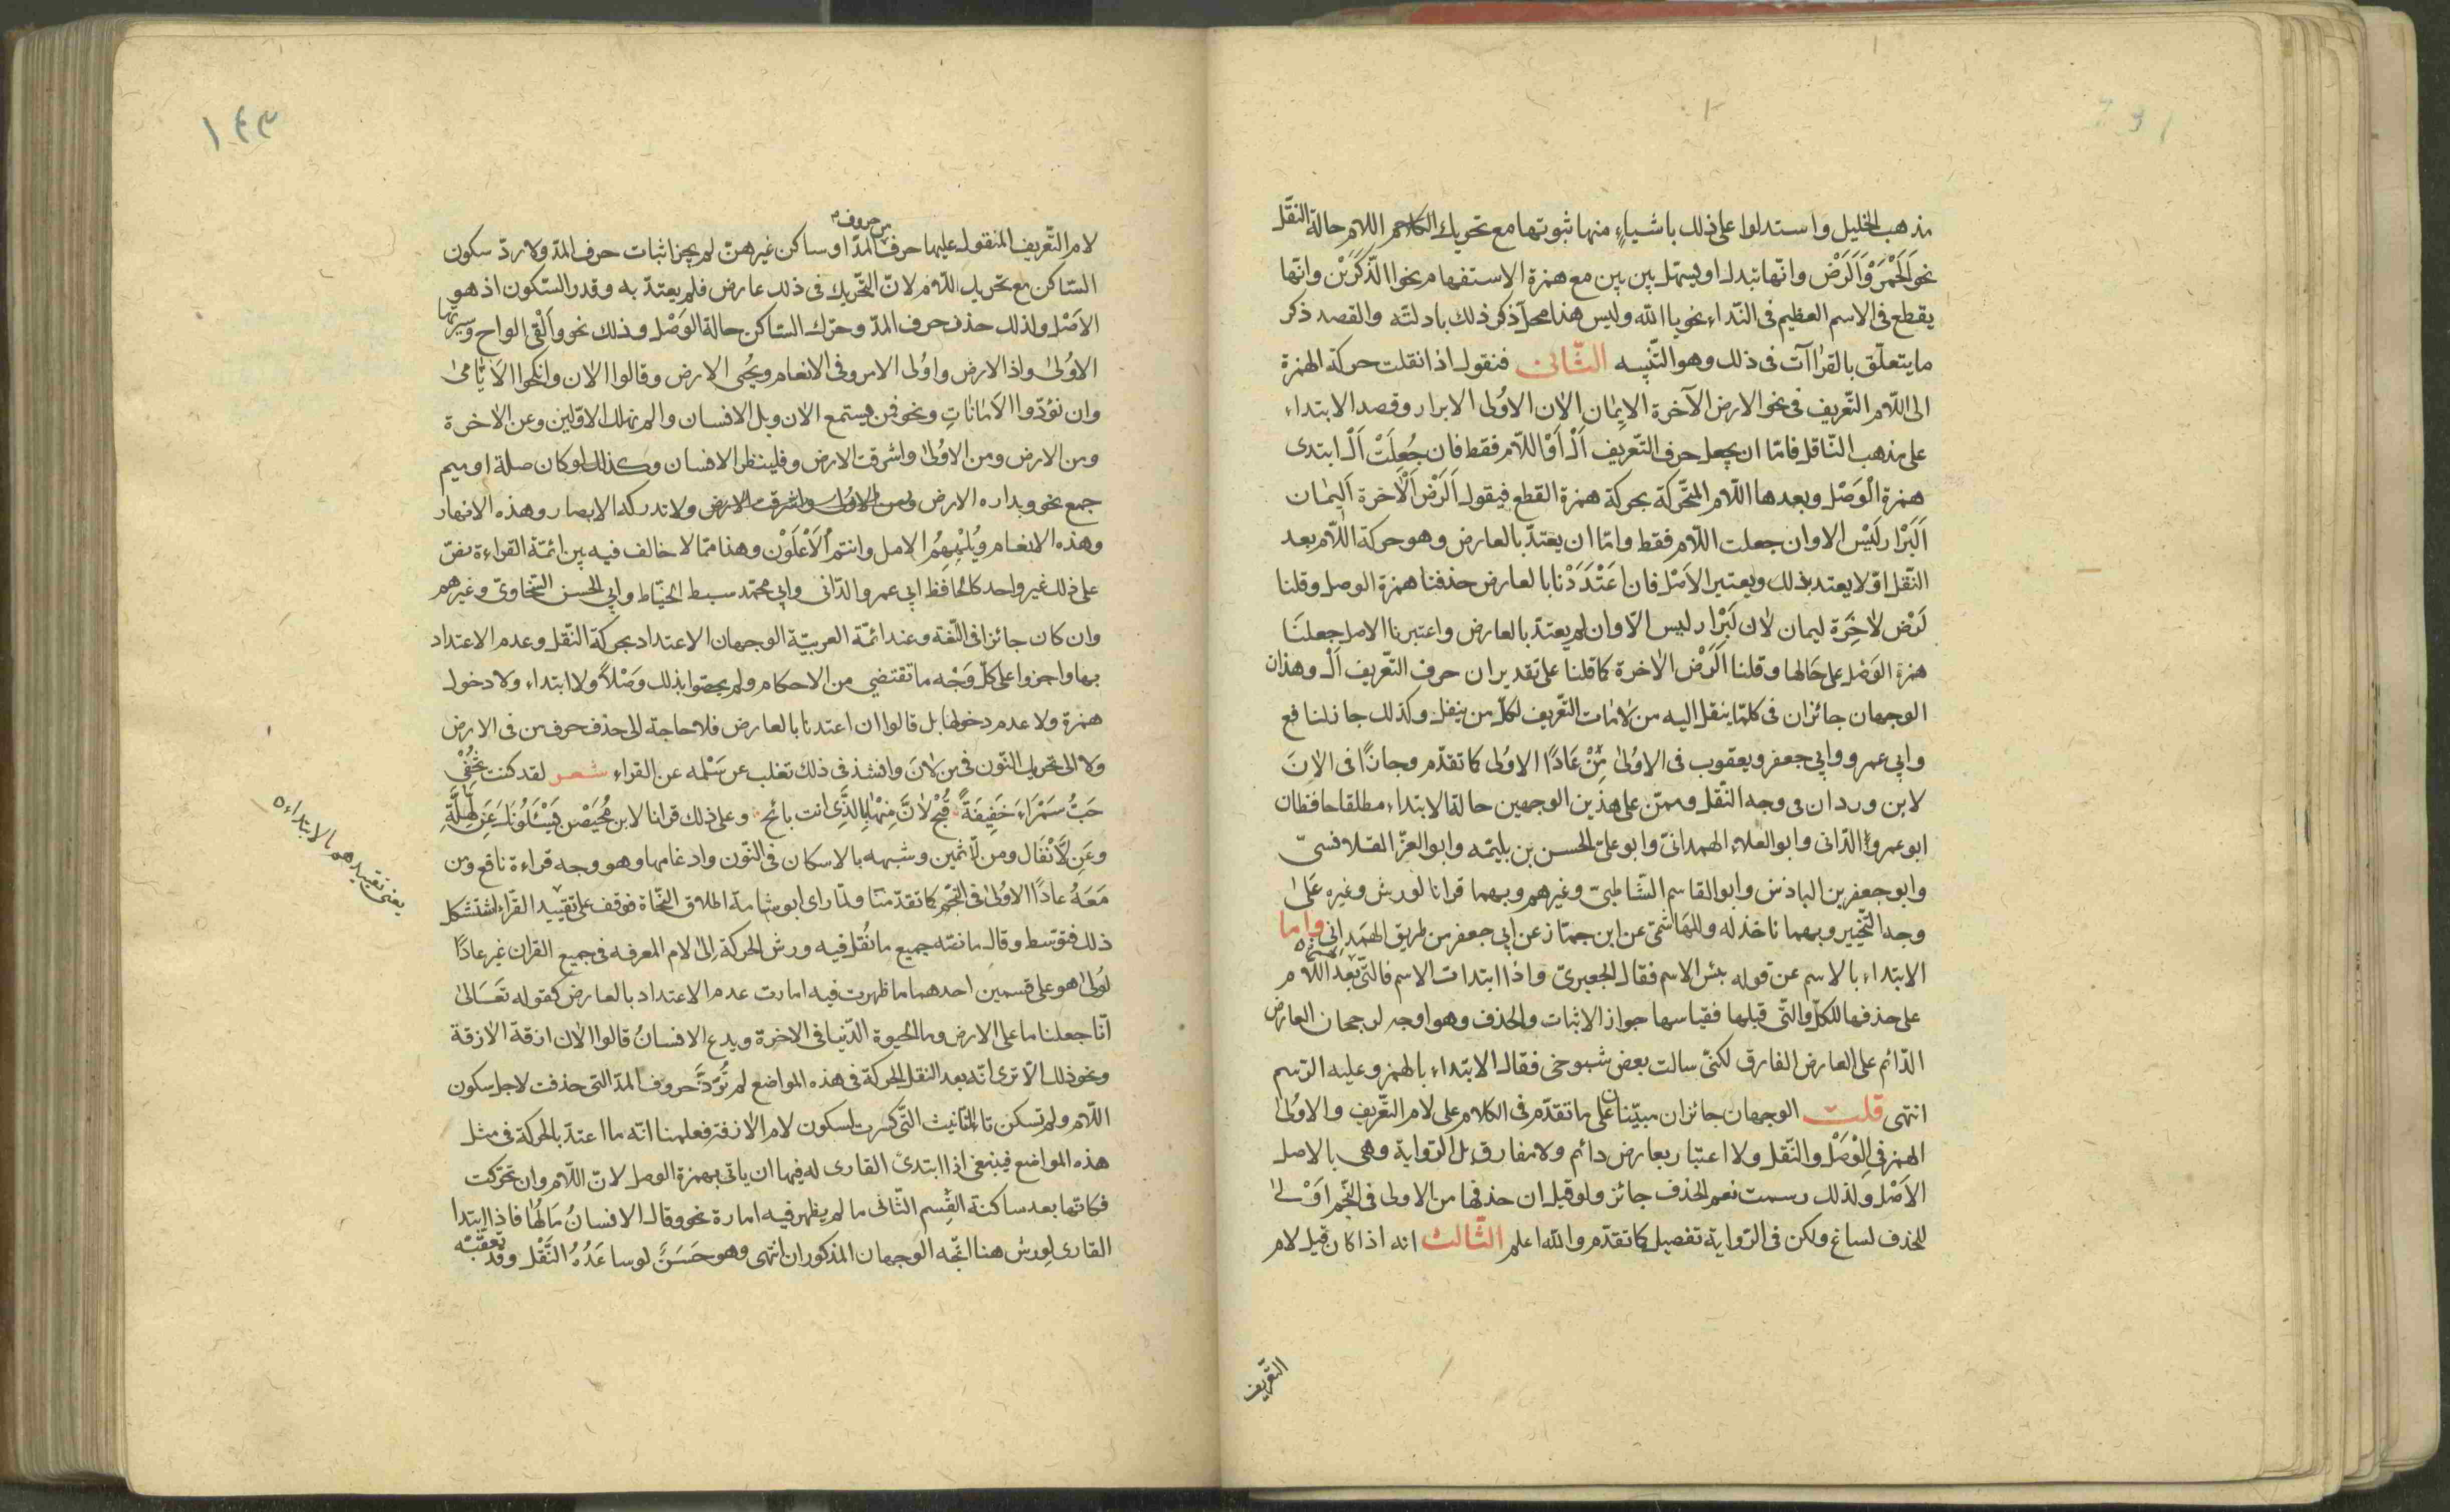 مذهب الخليل واستدلوا على ذلك باشياءٍ منها ثبوتها مع تحريك اللام حالة النقل
نحو اَلَحْمَرْ وَاَلَرْض وانّها تبدل او يسهل بين بين مع همزة الاستفهام نحو االذّكَرَيْن وانّها
يقطع فى الاسم العظيم فى النّداء نحو يا الله وليس هذا محل ذكر ذلك بادلّته والقصد ذكر
ما يتعلّق بالقراآت فى ذلك وهو التّنبيه الثّانى فنقول اذا نقلت حركة الهمزة
الى اللّام التّعريف فى نحو الارض الآخرة الايمان الان الاُولى الابرار وقصد الابتداء
على مذهب النّاقل فامّا ان يجعل حرف التّعريف اَلْ اَوْ اللّام فقط فان جُعِلَتْ اَلْ ابتدى
همزة الْوَصْل وبعدها اللّام المتحّركة بحركة همزة القطع فيقول اَلَرْض اَلَاخرة اَلِيمان
اَلَبْرار لَيْس الا وان جعلت اللّام فقط وامّا ان يعتدّ بالعارض وهو حركة اللّام بعد
النّقل اوّ لا يعتد بذلك ويعتبر الاَصْل فان اعْتَدَدْنا بالعارض حذفنا همزة الوصل وقلنا
لَرْض لاخِرَة ليمان لان لَبْرار ليس الّا وان لم يعتدّ بالعارض واعتبرنا الاصل جعلنَا
همزة الوَصْل على حَالها وقلنا اَلَرْض الاخرة كما قلنا على تقدير ان حرف التّعريف اَلْ وهذان
الوجهان جائزان فى كلمّا ينقل اليه من لامات التّعريف لكلّ من ينقل وكذلك جا ذلنا فع
وابى عمرو وابى جعفر ويعقوب فى الاُولىٰ مِّنْ عَادًا الاولى كما تقدّم وجازًا فى الانَ
لابن وردان فى وجه النّقل وممّن على هذين الوجهين حالة الابتداء مطلقا حافظان
ابو عمرو الدّانى وابو العلاء الهمدانىّ وابو علىّ الحسن بن بليمه وابو العزّ القلانسىّ
وابو جعفر بن الباذش وابو القاسم الشّاطبىّ وغيرهم وبهما قرانا لورش وغيره عَلىٰ
وجه التّخيير وبهما ناخذ له وللهَاشمىّ عن ابن جمّاز عن ابى جعفر من طريق الهمَدانى واما
الابتداء بالاسم عن قوله بئس الاسم فقال الجعبرىّ واذا ابتدات الاسم فالّتى بَعد اللّام
على حذفها للكلّ والّتى قبلها فقياسها جواز الاثبات والحذف وهو اوجه لرجحان العارض
الدّائم على العارض الفارق لكنّى سالت بعض شيوخى فقال الابتداء بالهمز وعليه الرّسم
انتهى قلت الوجهان جائزان مبيّنان على ما تقدّم فى الكلام على لام التّعريف والاوُلىٰ
الهمز فى الْوَصْل والنّقل ولا اعتبار بعارض دائم ولا مفارق بل الرّواية وهى بالاصل
الاَصْل ولذلك رسمت نعم الحذف جائز ولو قيل ان حذفها من الاولى فى النّجم اَوْلىٰ
للحذف لساغ ولكن فى الرّواية تفصيل كما تقدّم والله اعلم الثّالث انه اذا كان قبل لام
التّعريف
١٤٣
لام التّعريف المنقول عليها حرف من حروف المدّ او ساكن غيرهنّ لم يجز اثبات حرف المدّ ولا ردّ سكون
السّاكن مع تحريك اللّام لانّ التّحريك فى ذلك عارض فلم يعتدّ به وقدر السّكون اذ هو
الاَصْل ولذلك حذف حرف المدّ وحرّك السّاكن حالة الوَصْل وذلك نحو وألْقى الواح وسيرتها
الاوُلىٰ واذ الارض واوُلى الامر وفى الانعام ويُحْى الارض وقالوا الان وانكحوا الاَيَّامىٰ
وان تؤدّوا الاَمَاناتِ ونحو فمن يستمع الان وبل الانسان والم نهلك الاوّلين وعن الاخرة
ومن الارض ومن الاوُلىٰ واشرقت الارض وفلينظر الانسان وكذلك لو كان صلة او ميم
جمع نحو وبداره الارض ولا تدركه الابصار وهذه الانهار
وهذه الانعام ويُلْهِهِمُ الامل وانتم ُالاَعْلَوْن وهذا ممّا لا خالف فيه بين ائمّة القراءة نصّ
على ذلك غير واحد كالحافظ ابى عمرو الدّانى وابى محمّد سبط الخيّاط وابى الحسن السّخاوىّ وغيرهم
وان كان جائزا فى اللّغة وعند ائمّة العربيّة الوجهان الاعتداد بحركة النّقل وعدم الاعتداد
بها واجروا على كلّ وَجْه ما تقتضى من الاحكام ولم يخصّوا بذلك وَصْلاً ولا ابتداء ولا دخول
همزة ولا عدم دخولها بل قالوا ان اعتدنا بالعارض فلا حاجة الى حذف حرف من فى الارض
ولا الى تحريك النّون فى من لانَ وانشذ فى ذلك تغلب عن سَلْمه عن القراء شعر لقد كنت تُخْفِى
حَبَّ سَمْرَاءَ خَفِيفَةً فَبُحْ لانَّ مِنْهَا بِالَّذِى انت بائح وعلى ذلك قرانا لابن مُحَيْصن يَسْئَلُونَكَ عَنِ لَّهِلَّةِ
وعَنِ لَّانْفَال ومن لّاثمين وشبهه بالاسكان فى النّون وادغامها وهو وجه قراءة نافع ومن
مَعَهُ عادًا الاوُلىٰ فى النّجم كما تقدّمتا ولمّا راى ابو شامة اطلاق النّحاة فوقف على تقييد القرّاء استشكل
يعنى تقييدهم بالابتداء ه
ذلك فتوّسط وقال ما نصّه جميع ما نُقل فيه ورش الحركة اِلىٰ لام المعرفه فى جميع القران غير عادًا
لُولىٰ هو على قسمين احدهما ما ظهرت فيه امارت عدم الاعتداد بالعارض كقوله تَعَالىٰ
انّا جعلنا ما على الارض وما الحيوة الدّنيا فى الاخرة ويدع الانسانُ قالوا الان ازفة الازفة
ونحو ذلك الّا ترى انّه بعد النقل الحركة فى هذه المواضع لم تُردَّ حروف المدّ التى حذفت لاجل سكون
اللّام ولم تسكن تاء التّانيث الّتى كسرت لسكون لام الازفة فعلمنا انّه ما اعتدّ بالحركة فى مثل
هذه المواضع فينبغى اذا ابتدئ القارى له فيها ان ياتى بهمزة الوصل لانّ اللّام وان تحرّكت
فكانّها بعد ساكنة القِسم الثّانى ما لم يظهر فيه امارة نحو وقال الانسانُ مَا لهَٰا فاذا ابتدا
القارى لِورش هنا اتّجه الوجهان المذكوران انتهى وهو حَسَنَ لو ساعَدُهُ النَّقْل وقد تعقّبه